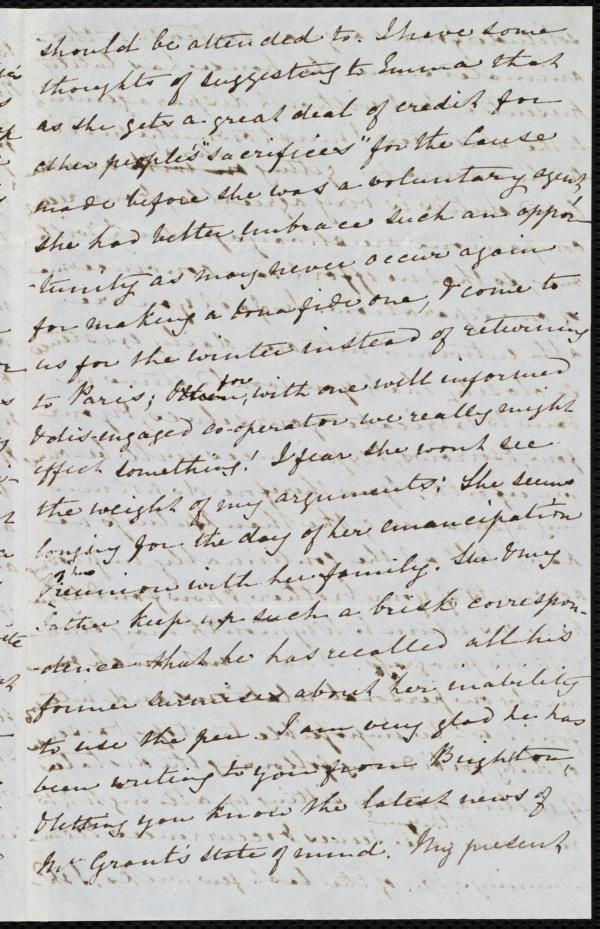 should be attended to. I have some
thoughts of suggesting to Emma that
as she gets a great deal of credit for
other people's "sacrifices" for the Cause
made before she was a voluntary agent,
she had better embrace such an oppor-
tunity as may never occur again
for making a bona fide one, & come to
us for the winter instead of returning
to Paris; for, with one well informed
& disengaged co-operator we really might
effect something! I fear she wont see
the weight of my arguments; She seems
longing for the day of her emancipation
& reunion with her family. She & my
Father keep up such a brisk correspon-
dence that he has recalled all his
former surmises about her inability
to use the pen. I am very glad he has
been writing to you from Brighton,
& letting you know the latest news of
Mr Grant's state of mind. My present